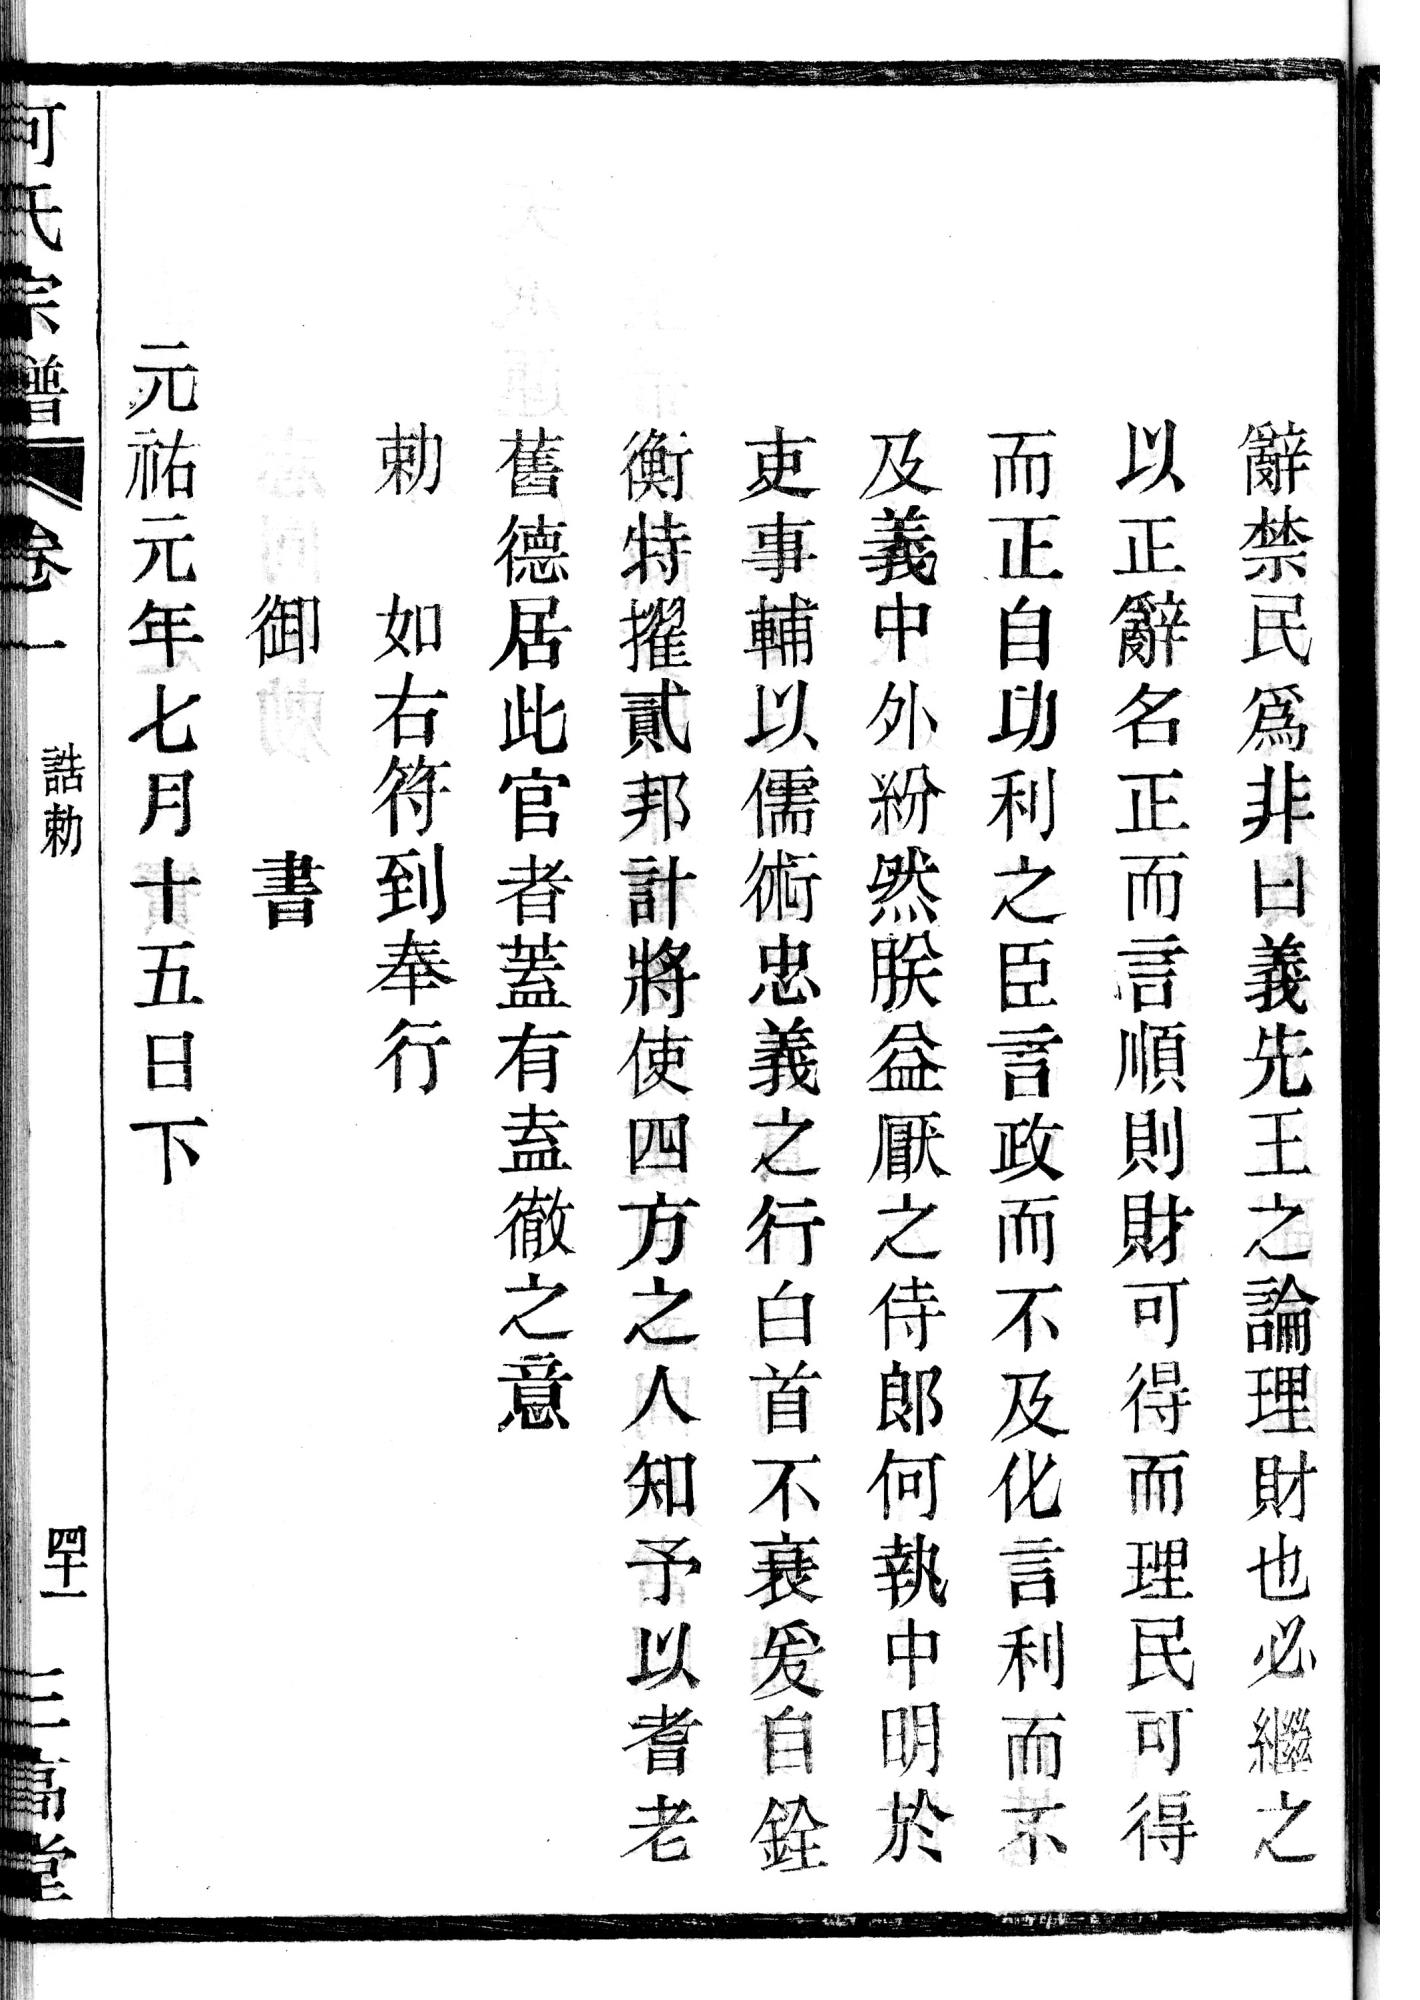 辭禁民爲非曰義先王之論理財也必繼之
以正辭名正而言順則財可得而理民可得
而正自功利之臣言政而不及化言利而不
及義中外紛然朕益厭之侍郎何執中明於
吏事輔以儒術忠義之行白首不衰爰自銓
衡特擢貳邦計將使四方之人知予以耆老
舊德居此官者蓋有盍徹之意
勅　如右符到奉行
御　　書
元祐元年七月十五日下
何氏宗譜　卷一　誥勅　四十一　三高堂